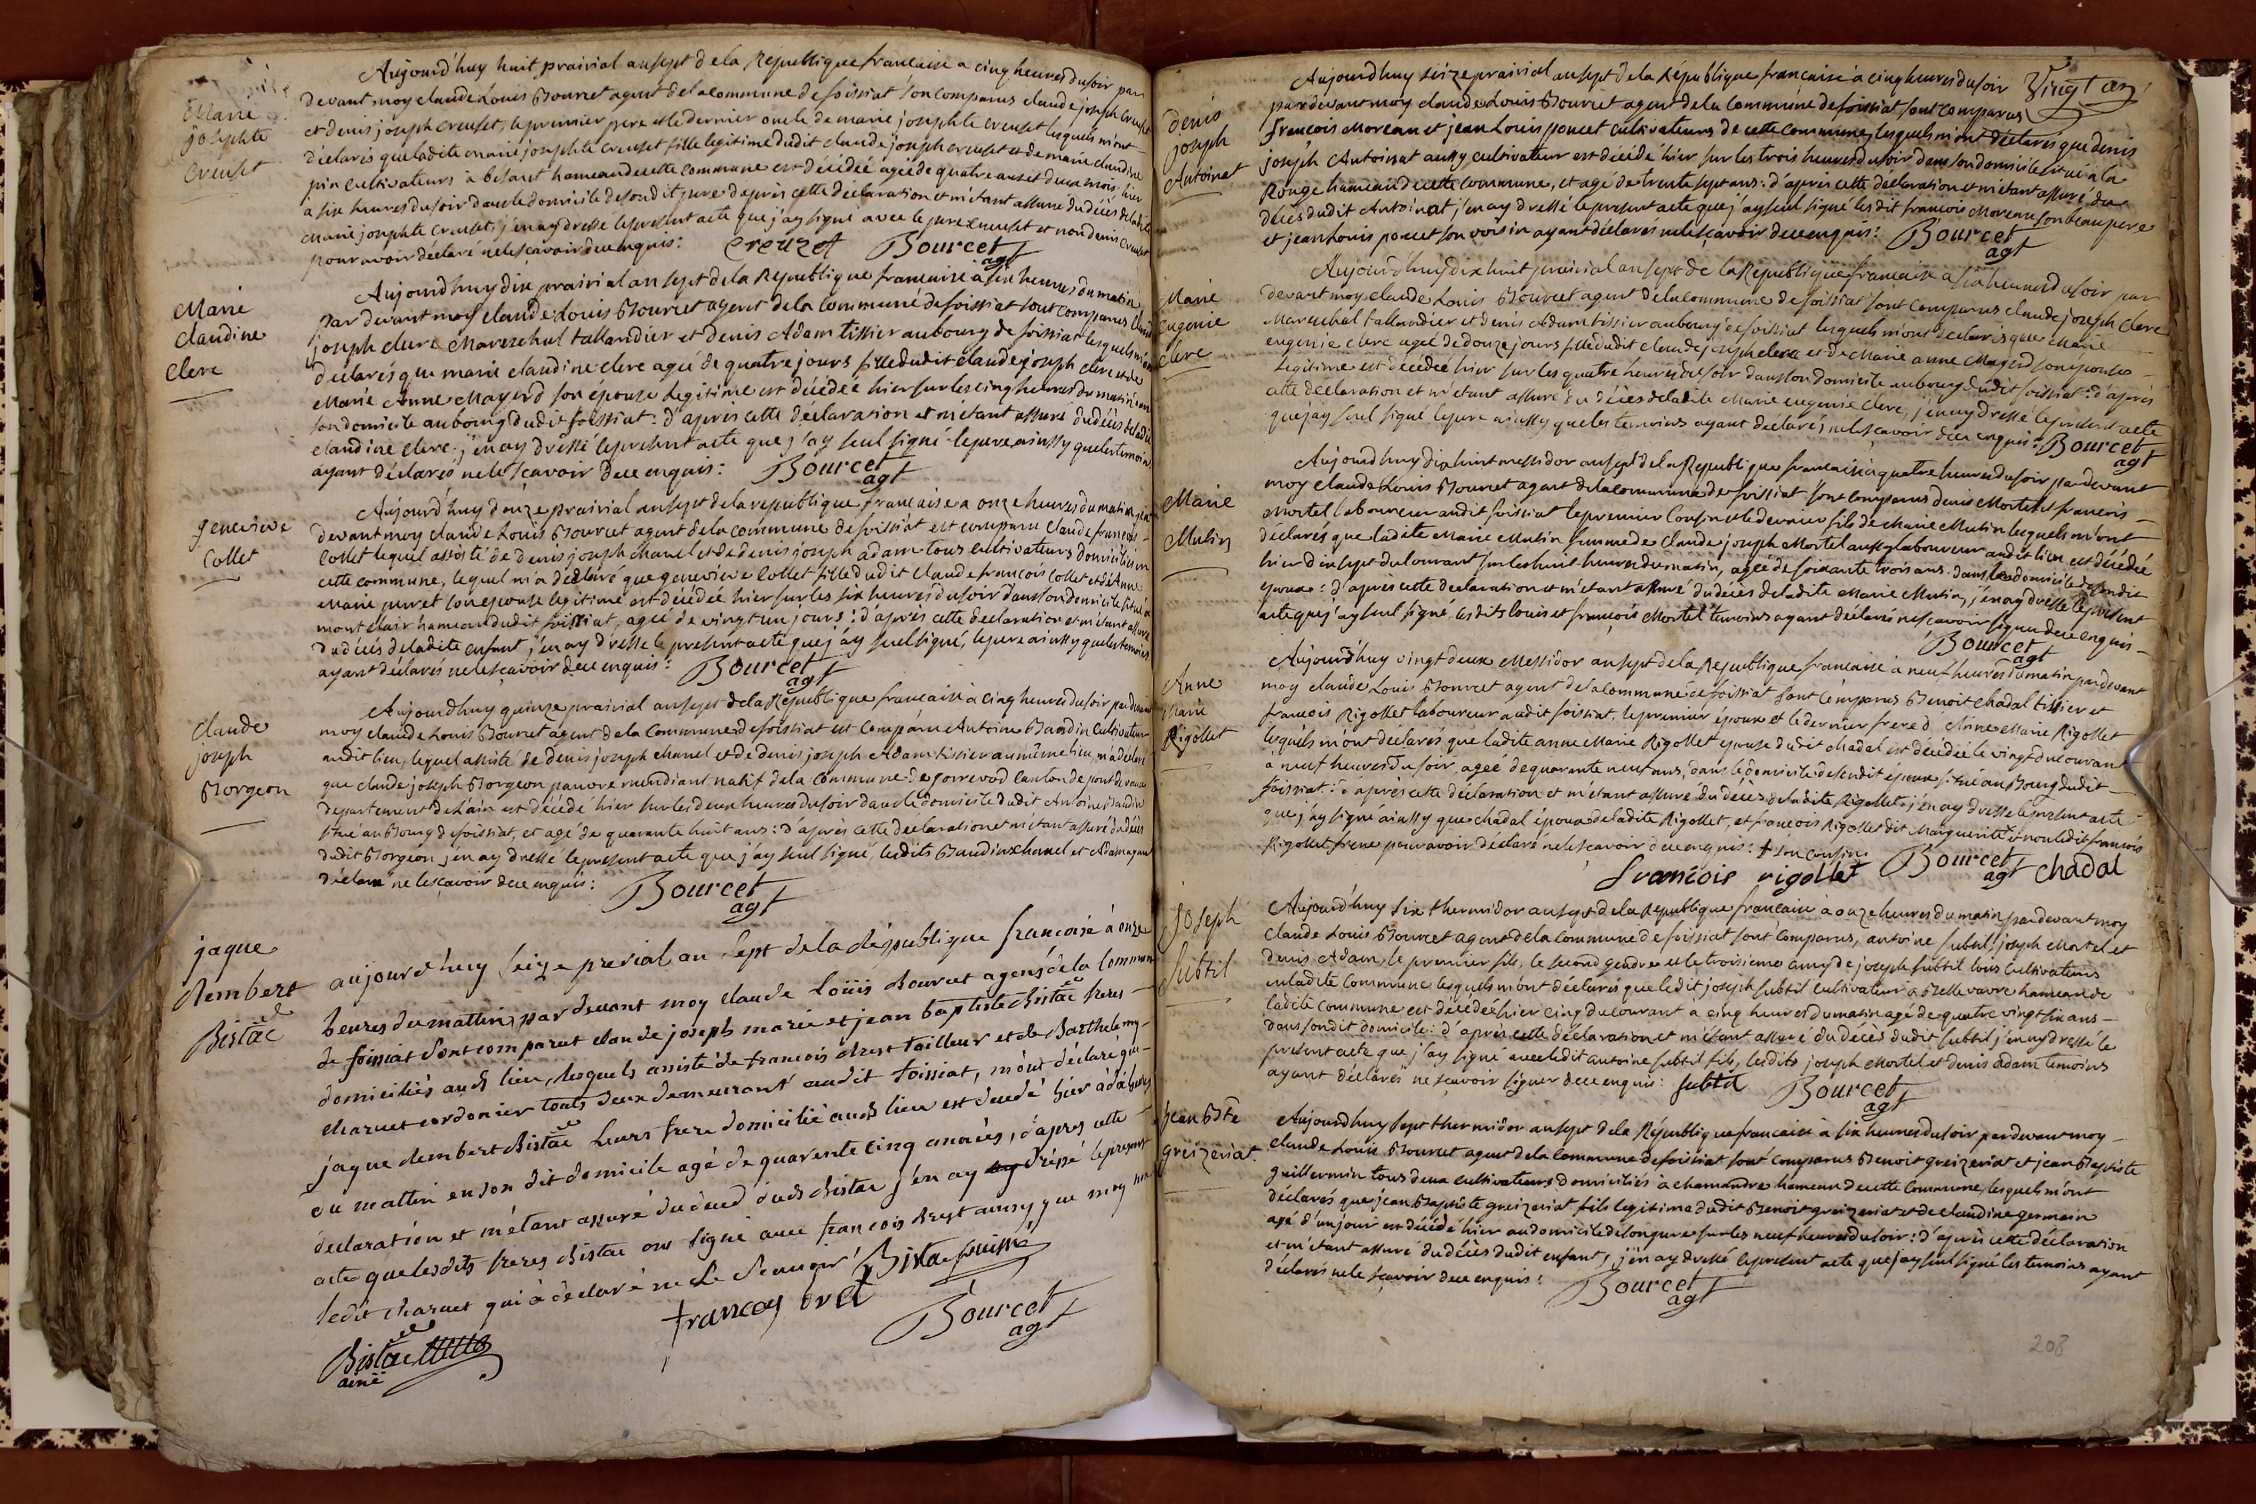 Marie
josephte
Creuset
Aujourd'huy huit prairial an sept de la Republique francaise a cinq heures du soir par
devant moy claude Louis Bourcet agent de la commune de foissiat sont comparus claude joseph creuset
et denis joseph creuset, le premier pere et le dernier oncle de marie josephte creuset lesquels m'ont
déclarés que ladite marie josephte creuset fille legitime dudit claude joseph creuset et de marie claudine
pin cultivateurs a hameau de cette commune est décédée agée de quatre ans et deux mois hier
a six heures du soir dans le domicile de sondit pere d'après cette déclaration et m'étant assuré du décès de ladite
Marie josephte creuset, j'en ay dressé le present acte que j'ay signé avec le pere creuset et non denis creuset
pour avoir déclaré ne le sçavoir de ce enquis : creuzet Bourcet
agt
Marie
claudine
clerc
Aujourd'huy dix prairial an sept de la Republique francaise à six heures du matin
par devant moy claude Louis Bourcet agent de la commune de foissiat sont comparus claude
joseph clerc Mareschal tallandier et denis Adam tissier au bourg de foissiat lesquels m'ont
déclarés que marie claudine clerc agée de quatre jours fille dudit claude joseph clerc et de
Marie Anne Mayerd son épouse legitime est décédée hier sur les cinq heures du matin en
son domicile au bourg dudit foissiat : d'après cette déclaration et m'étant assuré du décès de ladite
claudine clerc, j'en ay dressé le present acte que j'ay seul signé le pere ainssy que les temoins
ayant déclarés ne le sçavoir de ce enquis : Bourcet
agt
genevieve
Collet
Aujourd'huy douze prairial an sept de la republique francaise a onze heures du matin par
devant moy claude Louis Bourcet agent de la commune de foissiat est comparu claude francois
Collet lequel assisté de denis joseph chanel et de denis joseph adam tous cultivateurs domiciliés en
cette commune, lequel m'a déclaré que genevieve Collet fille dudit claude francois Collet et d'Anne
Marie puvet son epouse legitime est décédée hier sur les six heures du soir dans son domicile situé a
mont clair hameau dudit foissiat, agée de vingt un jours : d'après cette declaration et m'étant assuré
du décès de ladite enfant j'en ay dressé le present acte que j'ay seul signé, le pere ainssy que les temoins
ayant déclarés ne le sçavoir de ce enquis : Bourcet
agt
claude
joseph
Borgeon
Aujourd'huy quinze prairial an sept de la Republique francaise a cinq heures du soir par devant
moy claude Louis Bourcet agent de la commune de foissiat est comparu Antoine Baudin cultivateur
audit lieu, lequel assisté de denis joseph chanel et de denis joseph Adam tissier au même lieu, m'a déclaré
que claude joseph Borgeon pauvre mendiant natif de la commune de gorrevod canton de pont de vaux
departement de l'ain est décédé hier sur les deux heures du soir dans le domicile dudit Antoine Baudin
situé au Bourg de foissiat, et agé de quarante huit ans : d'après cette déclaration et m'étant assuré du décès
dudit Borgeon j'en ay dressé le present acte que j'ay seul signé, lesdits Baudin chanel et Adam ayant
déclaré ne le sçavoir de ce enquis : Bourcet
agt
jaque
Rembert
Bistac
aujourd'huy seize prerial an sept de la république francoise à onze
heures du mattin, par devant moy claude loüis Bourcet agent de la commune
de foissiat sont comparut claude joseph marie et jean baptiste Bistac freres
domiciliés aud lieu, lesquels assisté de francois drest tailleur et de Barthelemy
charuet cordonier touts deux demeurant audit foissiat, m'ont déclaré que
jaque Rembert Bistac leurs frere domicilié aud lieu est decedé hier à dix heures
du mattin en son dit domicile agé de quarente cinq années, d'apres cette
declaration et m'étant assuré du deced dud Bistac j'en ay dréssé le present
acte que lesdits freres Bistac ont signé avec francois drest aussy que moy non
ledit charuet qui à déclaré ne le scavoir Bistac
francoy dret Bourcet
agt
Bistac
ainé
Vingt an
denis
joseph
Antoinat
Aujourd'huy seize prairial an sept de la République française à cinq heures du soir
par devant moy claude Louis Bourcet agent de la commune de foissiat sont comparus
francois Moreau et jean Louis poncet cultivateurs de cette commune, lesquels m'ont déclarés que denis
joseph Antoinat aussy cultivateur est décédé hier sur les trois heures du soir dans son domicile situé à la
Rouge hameau de cette commune, et agé de trente sept ans : d'après cette déclaration et m'étant assuré du
décès dudit Antoinat j'en ay dressé le present acte que j'ay seul signé lesdit francois Moreau son beau pere
et jean Louis poncet son voisin ayant déclarés ne le sçavoir de ce enquis : Bourcet
agt
Marie
Eugenie
clerc
Aujourd'huy dix huit prairial an sept de la République francaise a six heures du soir par
devant moy claude Louis Bourcet agent de la commune de foissiat sont comparus claude joseph clerc
Mareschal tallandier et denis Adam tissier au bourg de foissiat lesquels m'ont declarés que Marie
eugenie clerc agée de douze jours fille dudit claude joseph clerc et de Marie anne Mayerd son épouse
legitime est décédée hier sur les quatre heures du soir dans son domicile au bourg dudit foissiat : d'après
cette déclaration et m'étant assuré du décès de ladite Marie eugenie clerc, j'en ay dressé le present acte
que j'ay seul signé le pere ainssy que les temoins ayant déclarés ne le sçavoir de ce enquis : Bourcet
agt
Marie
Mutin
Aujourd'huy dix huit messidor an sept de la Republique francaise à quatre heures du soir par devant
moy claude Louis Bourcet agent de la commune de foissiat sont comparus denis Mortel et francois
Mortel laboureur audit foissiat le premier cousin et le dernier fils de Marie Mutin lesquels m'ont
déclarés que ladite Marie Mutin femme de claude joseph Mortel aussy laboureur audit lieu est décédée
hier dix sept du courant sur les huit heures du matin, agée de soixante trois ans dans le domicile de sondit
epoux : d'après cette déclaration et m'étant assuré du décès de ladite Marie Mutin, j'en ay dressé le present
acte que j'ay seul signé, lesdits louis et francois Mortel temoins ayant déclarés ne sçavoir signer de ce enquis
Bourcet
agt
Anne
Marie
Rigollet
Aujourd'huy vingt deux Messidor an sept de la Republique francaise à neuf heures du matin par devant
moy claude Louis Bourcet agent de la commune de foissiat sont comparus Benoit chadal tissier et
francois Rigollet laboureur audit foissiat, le premier époux et le dernier frere d'Anne Marie Rigollet
lesquels m'ont declarés que ladite anne Marie Rigollet epouse dudit chadal est décédée le vingt du courant
à neuf heures du soir, agée de quarante neuf ans, dans le domicile de sondit époux situé au Bourg dudit
foissiat : d'après cette déclaration et m'étant assuré du décès de ladite Rigollet, j'en ay dressé le present acte
que j'ay signé ainssy que chadal époux de ladite Rigollet, et francois Rigollet dit Marguerite + et non ledit francois
Rigollet frere pour avoir déclaré ne le sçavoir de ce enquis : + son cousin
françois rigollet Bourcet
agt chadal
Joseph
Subtil
Aujourd'huy six thermidor an sept de la Republique francaise à onze heures du matin par devant moy
claude Louis Bourcet agent de la commune de foissiat sont comparus, antoine subtil, joseph Mortel et
denis Adam, le premier fils, le second gendre et le troisieme amy de joseph subtil tous cultivateurs
en ladite commune lesquels m'ont déclarés que ledit joseph subtil cultivateur à Bellevavre hameau de
ladite commune est décédé hier cinq du courant a cinq heures du matin agé de quatre vingt six ans
dans sondit domicile : d'après cette déclaration et m'étant assuré du décès dudit subtil j'en ay dressé le
present acte que j'ay signé avec ledit antoine subtil fils, lesdits joseph Mortel et denis Adam temoins
ayant déclarés ne sçavoir signer de ce enquis : subtil Bourcet
agt
Jean Bte
greizeriat
Aujourd'huy sept thermidor an sept de la République francaise à six heures du soir par devant moy
claude Louis Bourcet agent de la commune de foissiat sont comparus Benoit greizeriat et jean Baptiste
guillermin tous deux cultivateurs domiciliés à chamandre hameau de cette commune, lesquels m'ont
déclarés que jean Baptiste greizeriat fils legitime dudit Benoit greizeriat et de claudine germain
agé d'un jour est décédé hier au domicile de son pere sur les neuf heures du soir : d'après cette déclaration
et m'étant assuré du décès dudit enfant, j'en ay dressé le present acte que j'ay seul signé les temoins ayant
déclarés ne le sçavoir de ce enquis : Bourcet
agt
208